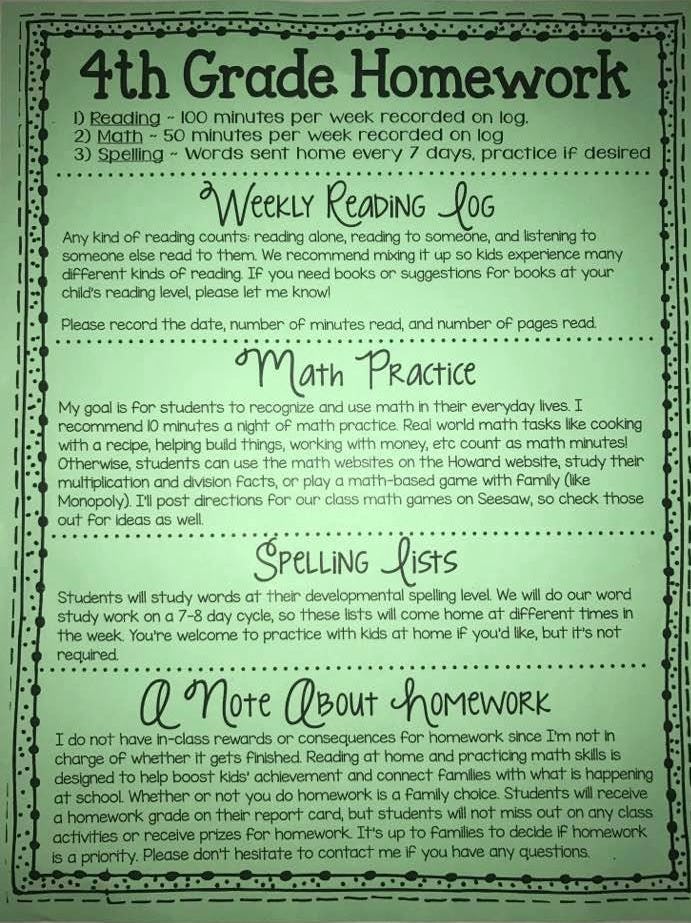 4th Grade Homework
1) Reading ~ 100 minutes per week recorded on log.
2) Math ~ 50 minutes per week recorded on log
3) Spelling ~ Words sent home every 7 days, practice if desired
Weekly Reading Log
Any kind of reading counts: reading alone, reading to someone, and listening to
someone else read to them. We recommend mixing it up so kids experience many
different kinds of reading. If you need books or suggestions for books at your
child's reading level, please let me know!
Please record the date, number of minutes read, and number of pages read.
Math Practice
My goal is for students to recognize and use math in their everyday lives. I
recommend 10 minutes a night of math practice. Real world math tasks like cooking
with a recipe, helping build things, working with money, etc count as math minutes!
Otherwise, students can use the math websites on the Howard website, study their
multiplication and division facts, or play a math-based game with family (like
Monopoly). I'll post directions for our class math games on Seesaw, so check those
out for ideas as well.
Spelling Lists
Students will study words at their developmental spelling level. We will do our word
study work on a 7-8 day cycle, so these lists will come home at different times in
the week. You're welcome to practice with kids at home if you'd like, but it's not
required.
A Note About Homework
I do not have in-class rewards or consequences for homework since I'm not in
charge of whether it gets finished. Reading at home and practicing math skills is
designed to help boost kids' achievement and connect families with what is happening
at school. Whether or not you do homework is a family choice. Students will receive
a homework grade on their report card, but students will not miss out on any class
activities or receive prizes for homework. It's up to families to decide if homework
is a priority. Please don't hesitate to contact me if you have any questions.